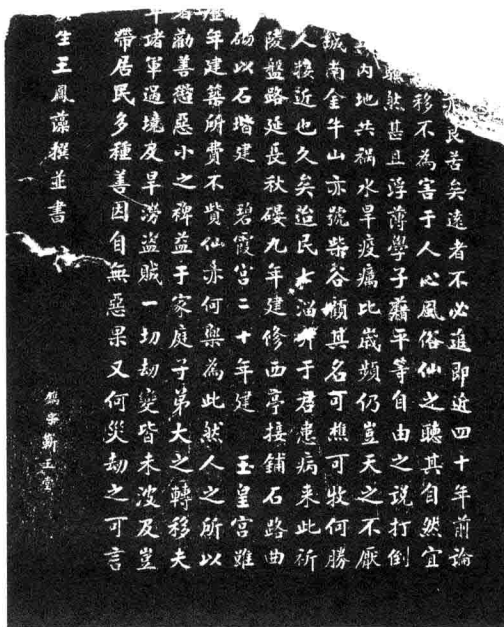 良苦矣遠者不必追即近四十年前論
移不為害于人心風俗仙之聽其自然宜
騷然甚且浮薄學子藉平等自由之說打倒
內地共禍水旱疫癘比歲頻仍豈天之不厭
城南金牛山亦號柴谷顧其名可樵可牧何勝
人接近也久矣迨民淄于君患病来此祈
陵盤路延長秋九年建修西亭接鋪石路曲
以石堦建 碧霞宮二十年建 玉皇宮雖
年建築所費不貲仙亦何樂為此然人之所以
者勸善懲惡小之裨益于家庭子弟大之轉移夫
年堵軍過境及旱澇盜賊一切劫變皆未波及豈
帶居民多種善因自無惡果又何災劫之可言
生王鳳藻撰並書
鐫字靳玉堂